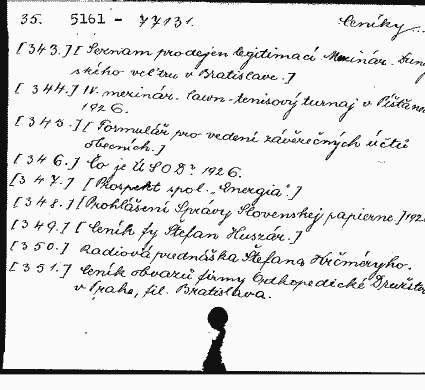 35. 5161 - 77131. Ceníky...
[343.] [Seznam prodejen legitimací Mezinár. Duna
ského veľtru v Bratislave.]
[344.] IV. mezinár. lawn-tenisový turnaj v Píšťan
1926.
[345.] [Formulář pro vedení závěrečných účtů
obecních.]
[346.] Co je ÚSOD? 1926.
[347.] [Prospekt spol. „Energia“.]
[348.] [Prohlášení Správy Slovenskej papierne.] 192
[349.] [Ceník fy Štefan Huszár.]
[350.] Radiová prednáška Štefana Krčméryho.
[351.] Ceník obvazů firmy Orthopedické Družstv
v Praha, fil. Bratislava.